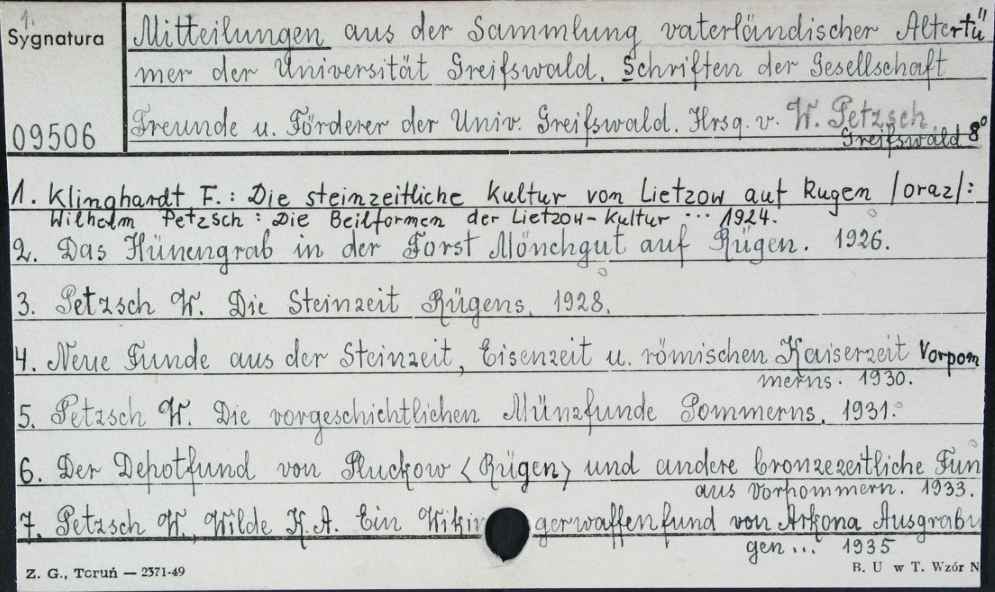 1.
Sygnatura
09506
Mitteilungen aus der Sammlung vaterländischer Altertü
mer der Universität Greifswald. Schriften der Gesellschaft
Freunde u. Förderer der Univ. Greifswald. Hrsg. v. W. Petzsch
Greifswald 8°
1. Klinghardt F.: Die steinzeitliche Kultur von Lietzow auf Rugen /oraz/:
Wilhelm Petzsch: Die Beilformen der Lietzow-Kultur ... 1924.
2. Das Hünengrab in der Forst Mönchgut auf Rügen. 1926.
3. Petzsch W. Die Steinzeit Rügens. 1928.
4. Neue Funde aus der Steinzeit, Eisenzeit u. römischen Kaiserzeit Vorpom
merns. 1930.
5. Petzsch W. Die vorgeschichtlichen Münzfunde Pommerns. 1931.
6. Der Depotfund von Pluckow <Rügen> und andere bronzezeitliche Fun
aus Vorpommern. 1933.
7. Petzsch W., Wilde K.A. Ein Wikingerwaffenfund von Arkona Ausgrabu
gen... 1935
Z. G., Toruń — 2371-49
B. U w T. Wzór N